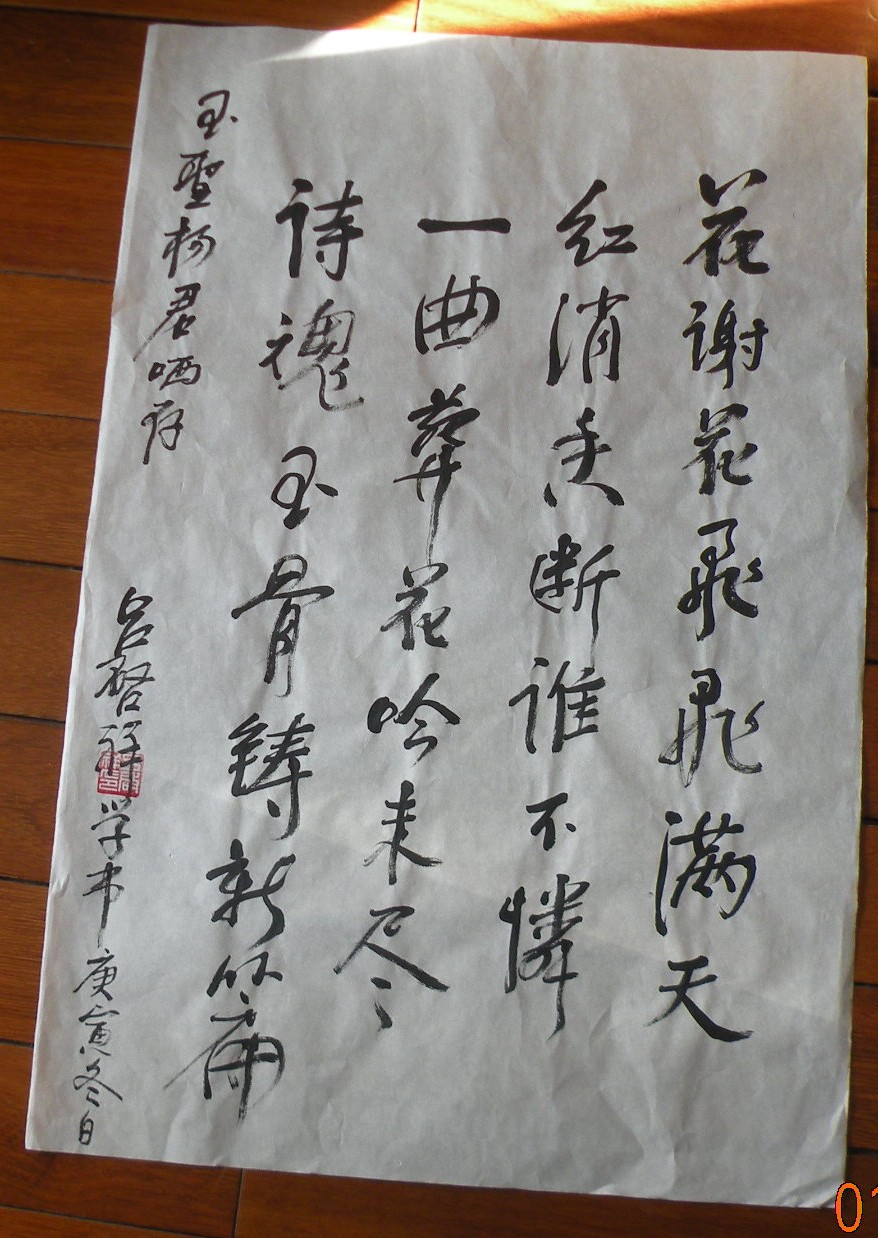 花谢花飞飞满天
红消香断谁不怜
一曲葬花吟未尽
诗魂玉骨铸新篇
玉圣柯君哂存
吕启祥学书庚寅冬日
01